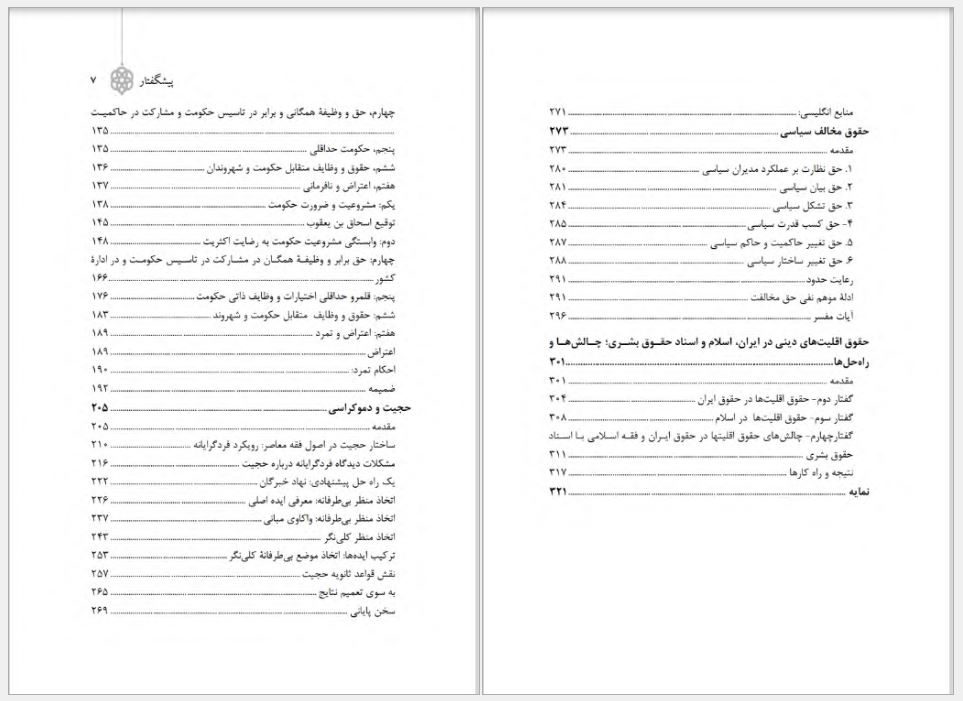 پیشگفتار ۷
چهارم، حق و وظیفۀ همگانی و برابر در تاسیس حکومت و مشارکت در حاکمیت
۱۳۵
پنجم، حکومت حداقلی ۱۳۵
ششم، حقوق و وظایف متقابل حکومت و شهروندان ۱۳۶
هفتم، اعتراض و نافرمانی ۱۳۷
یکم: مشروعیت و ضرورت حکومت ۱۳۸
توقیع اسحاق بن یعقوب ۱۴۵
دوم: وابستگی مشروعیت حکومت به رضایت اکثریت ۱۴۸
چهارم: حق برابر و وظیفۀ همگان در مشارکت در تاسیس حکومت و در ادارۀ
کشور ۱۶۶
پنجم: قلمرو حداقلی اختیارات و وظایف ذاتی حکومت ۱۷۶
ششم: حقوق و وظایف متقابل حکومت و شهروند ۱۸۳
هفتم: اعتراض و تمرد ۱۸۹
اعتراض ۱۸۹
احکام تمرد: ۱۹۰
ضمیمه ۱۹۲
حجیت و دموکراسی ۲۰۵
مقدمه ۲۰۵
ساختار حجیت در اصول فقه معاصر: رویکرد فردگرایانه ۲۱۰
مشکلات دیدگاه فردگرایانه درباره حجیت ۲۱۶
یک راه حل پیشنهادی: نهاد خبرگان ۲۲۲
اتخاذ منظر بی‌طرفانه: معرفی ایده اصلی ۲۲۶
اتخاذ منظر بی‌طرفانه: واکاوی مبانی ۲۳۷
اتخاذ منظر کلی‌نگر ۲۴۳
ترکیب ایده‌ها: اتخاذ موضع بی‌طرفانۀ کلی‌نگر ۲۵۳
نقش قواعد ثانویه حجیت ۲۵۷
به سوی تعمیم نتایج ۲۶۵
سخن پایانی ۲۶۹
منابع انگلیسی: ۲۷۱
حقوق مخالف سیاسی ۲۷۳
مقدمه ۲۷۳
۱. حق نظارت بر عملکرد مدیران سیاسی ۲۸۰
۲. حق بیان سیاسی ۲۸۱
۳. حق تشکل سیاسی ۲۸۴
۴- حق کسب قدرت سیاسی ۲۸۵
۵. حق تغییر حاکمیت و حاکم سیاسی ۲۸۷
۶. حق تغییر ساختار سیاسی ۲۸۸
رعایت حدود ۲۹۱
ادلۀ موهم نفی حق مخالفت ۲۹۱
آیات مفسر ۲۹۶
حقوق اقلیت‌های دینی در ایران، اسلام و اسناد حقوق بشری؛ چالش‌ها و
راه‌حل‌ها ۳۰۱
مقدمه ۳۰۱
گفتار دوم- حقوق اقلیت‌ها در حقوق ایران ۳۰۴
گفتار سوم- حقوق اقلیت‌ها در اسلام ۳۰۸
گفتارچهارم- چالش‌های حقوق اقلیتها در حقوق ایران و فقه اسلامی با اسناد
حقوق بشری ۳۱۱
نتیجه و راه کارها ۳۱۷
نمایه ۳۲۱